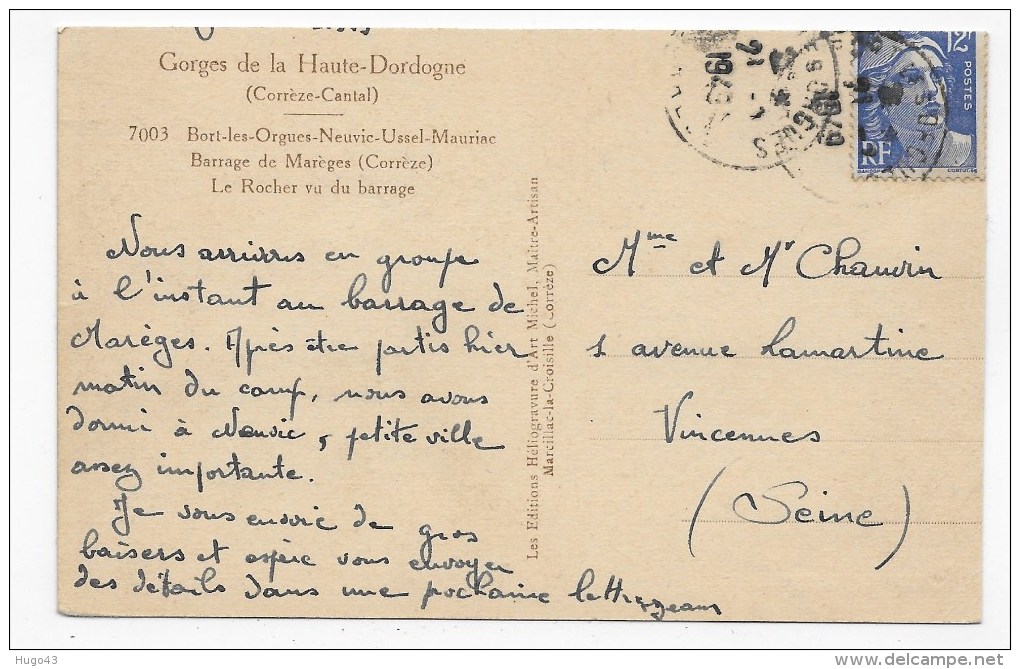 Gorges de la Haute-Dordogne
(Corrèze-Cantal)
7003 Bort-les-Orgues-Neuvic-Ussel-Mauriac
Barrage de Marèges (Corrèze)
Le Rocher vu du barrage
Nous arrivons en groupe
à l'instant au barrage de
Marèges. Après être partis hier
matin du camp, nous avons
dormi à Neuvic, petite ville
assez importante.
Je vous envoie de gros
baisers et espère vous envoyer
des détails dans une prochaine lettre. Jean
Les Editions Héliogravure d'Art Michel, Maître-Artisan
Marcillac-la-Croisille (Corrèze)
12F
POSTES
RF
Mme et Mr Chauvin
1 avenue Lamartine
Vincennes
(Seine)
Hugo43
www.delcampe.net